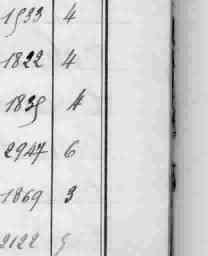 1533 4
1822 4
1835 4
2947 6
1869 3
2122 5